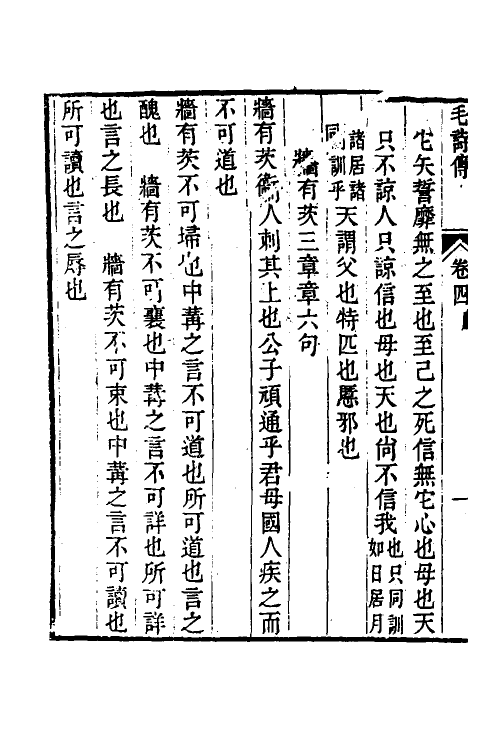 毛詩傳
卷四
一
它矢誓靡無之至也至己之死信無它心也母也天
只不諒人只諒信也母也天也尙不信我也只同訓如日居月
諸居諸同訓乎天謂父也特匹也慝邪也
牆有茨三章章六句
牆有茨衞人刺其上也公子頑通乎君母國人疾之而
不可道也
牆有茨不可埽也中冓之言不可道也所可道也言之
醜也　牆有茨不可襄也中冓之言不可詳也所可詳
也言之長也　牆有茨不可束也中冓之言不可讀也
所可讀也言之辱也